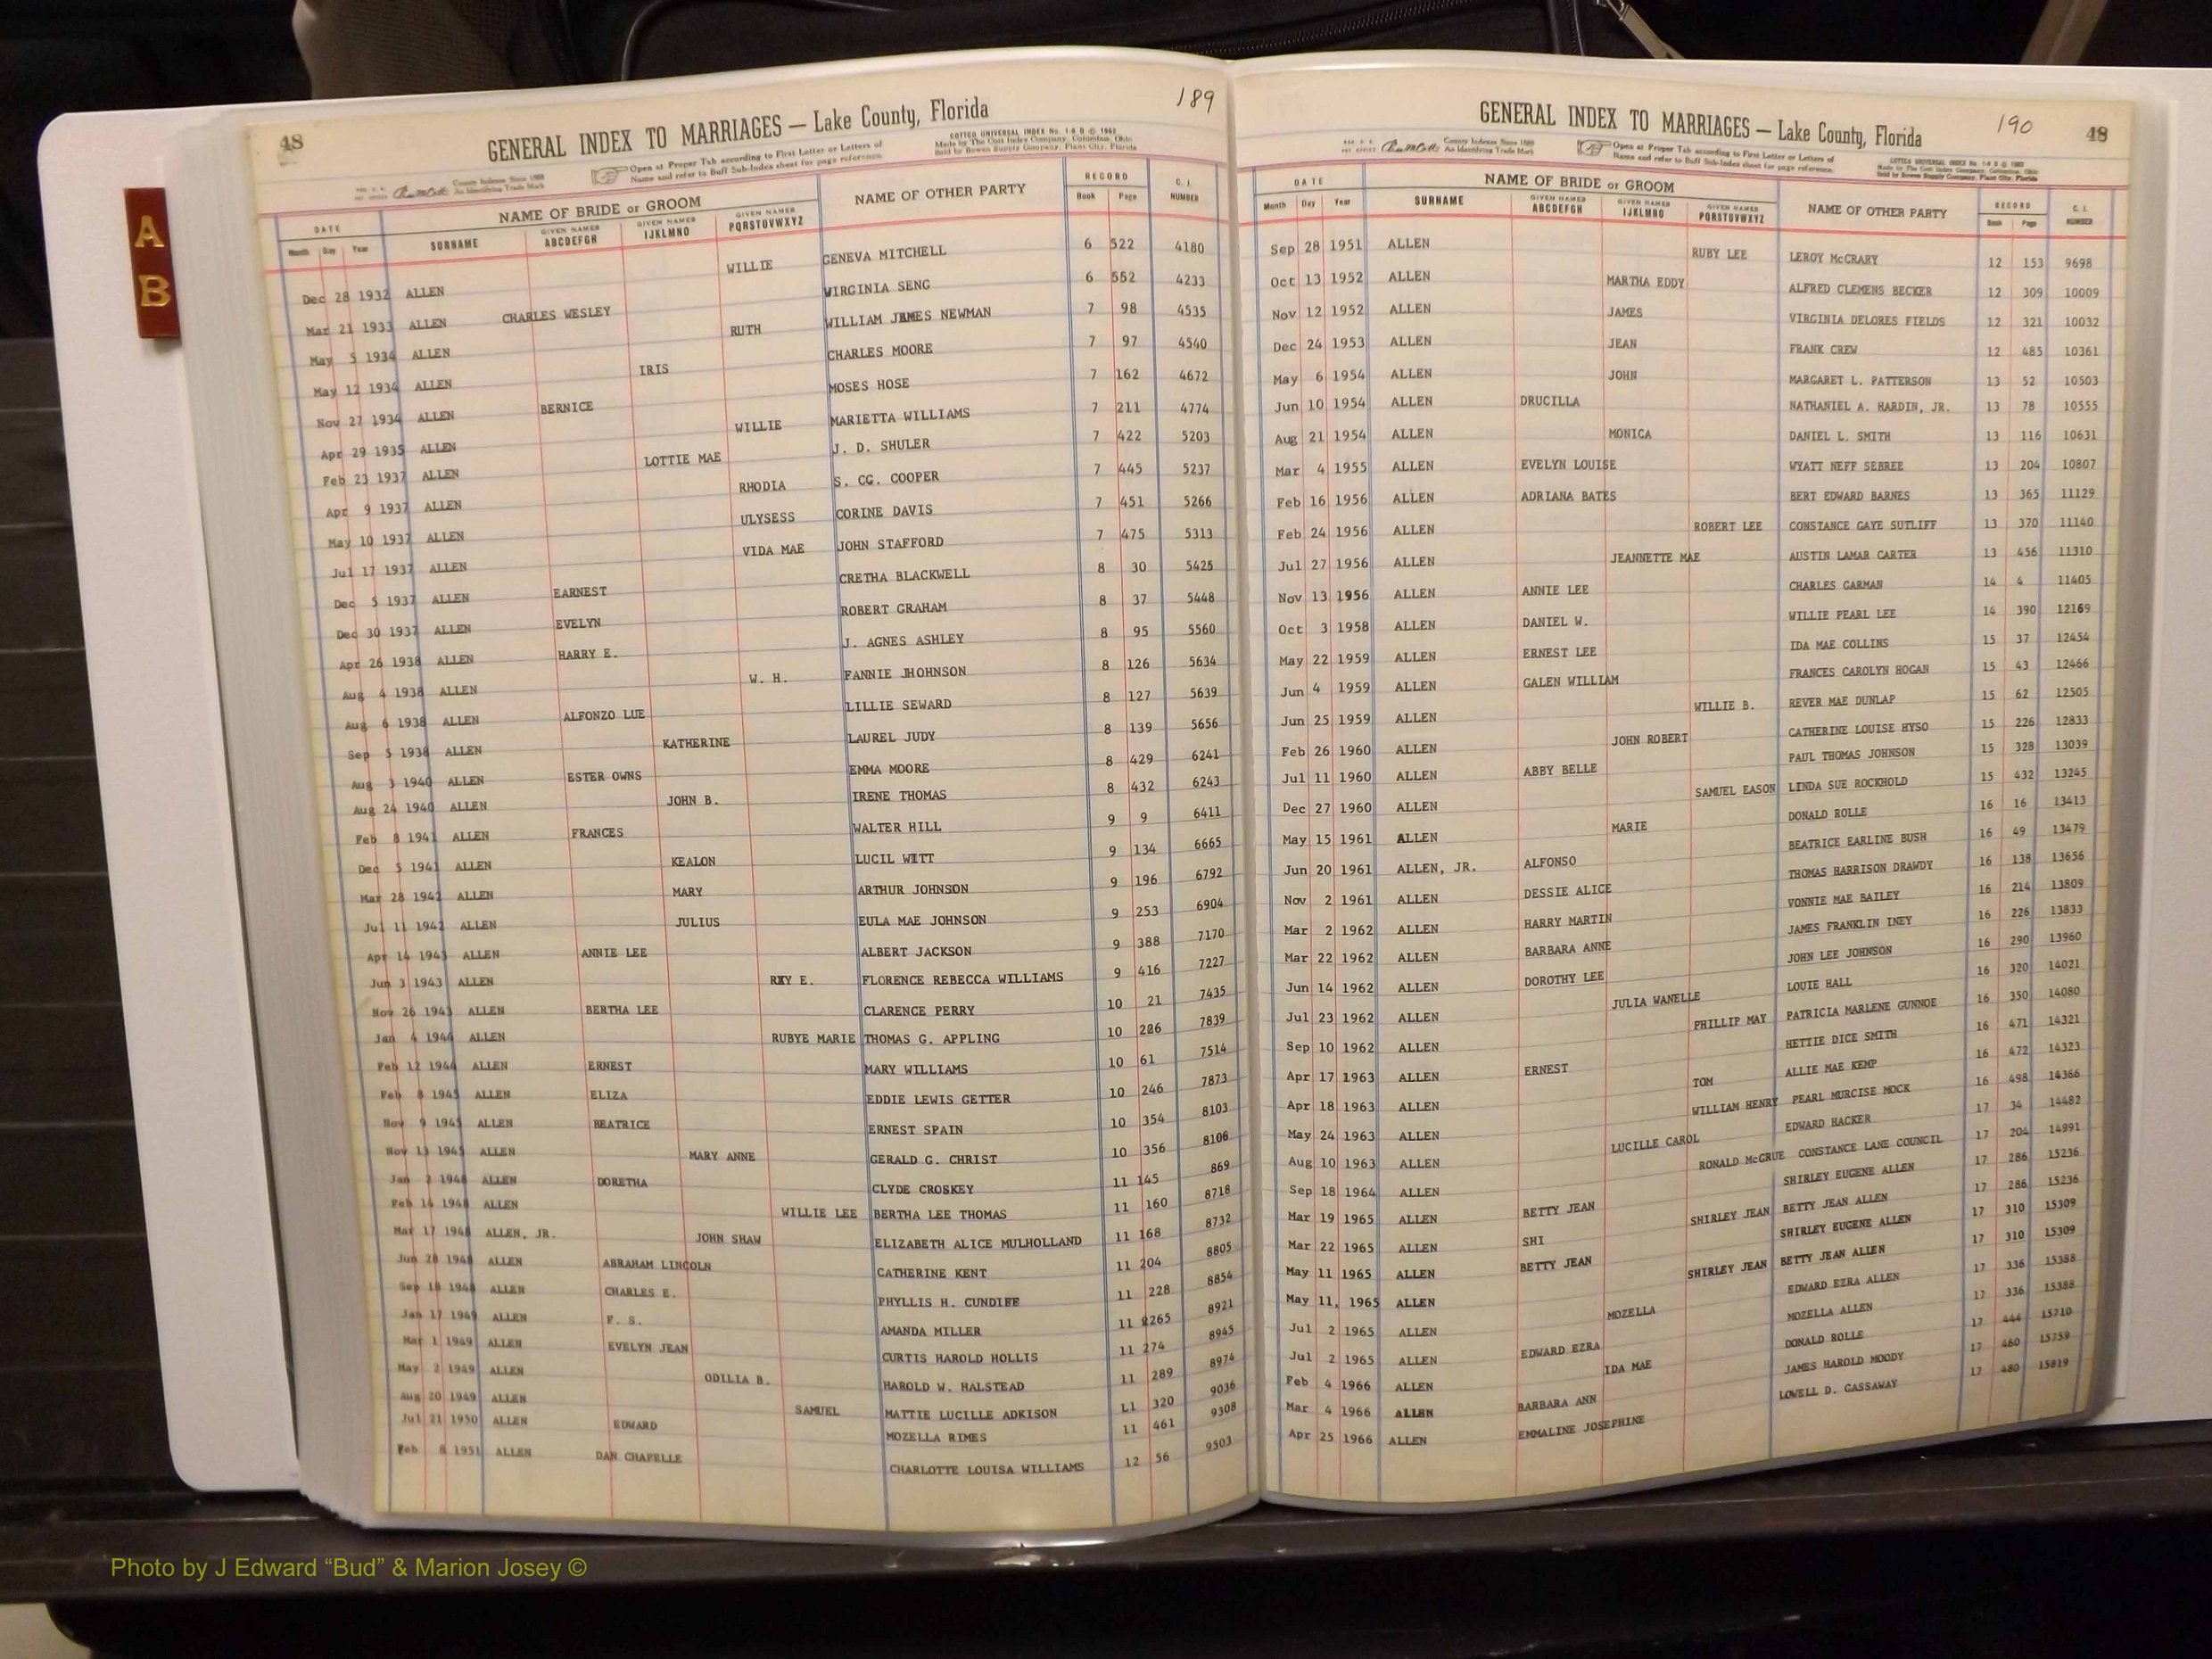 48 GENERAL INDEX TO MARRIAGES — Lake County, Florida 189
County Indexes Since 1888
An Identifying Trade Mark
Open at Proper Tab according to First Letter or Letters of
Name and refer to Buff Sub-Index sheet for page reference.
COTTCO UNIVERSAL INDEX No. 1-8 D © 1962
Made by The Cott Index Company, Columbus, Ohio
Sold by Bowen Supply Company, Plant City, Florida
DATE NAME OF BRIDE or GROOM NAME OF OTHER PARTY RECORD C. I. NUMBER
Month Day Year SURNAME GIVEN NAMES ABCDEFGH GIVEN NAMES IJKLMNO GIVEN NAMES PQRSTUVWXYZ Book Page
Dec 28 1932 ALLEN WILLIE GENEVA MITCHELL 6 522 4180
Mar 21 1933 ALLEN CHARLES WESLEY VIRGINIA SENG 6 552 4233
May 5 1934 ALLEN RUTH WILLIAM JAMES NEWMAN 7 98 4535
May 12 1934 ALLEN IRIS CHARLES MOORE 7 97 4540
Nov 27 1934 ALLEN BERNICE MOSES HOSE 7 162 4672
Apr 29 1935 ALLEN WILLIE MARIETTA WILLIAMS 7 211 4774
Feb 23 1937 ALLEN LOTTIE MAE J. D. SHULER 7 422 5203
Apr 9 1937 ALLEN RHODIA S. CG. COOPER 7 445 5237
May 10 1937 ALLEN ULYSESS CORINE DAVIS 7 451 5266
Jul 17 1937 ALLEN VIDA MAE JOHN STAFFORD 7 475 5313
Dec 5 1937 ALLEN EARNEST CRETHA BLACKWELL 8 30 5425
Dec 30 1937 ALLEN EVELYN ROBERT GRAHAM 8 37 5448
Apr 26 1938 ALLEN HARRY E. J. AGNES ASHLEY 8 95 5560
Aug 4 1938 ALLEN W. H. FANNIE JHOHNSON 8 126 5634
Aug 6 1938 ALLEN ALFONZO LUE LILLIE SEWARD 8 127 5639
Sep 5 1938 ALLEN KATHERINE LAUREL JUDY 8 139 5656
Aug 3 1940 ALLEN ESTER OWNS EMMA MOORE 8 429 6241
Aug 24 1940 ALLEN JOHN B. IRENE THOMAS 8 432 6243
Feb 8 1941 ALLEN FRANCES WALTER HILL 9 9 6411
Dec 5 1941 ALLEN KEALON LUCIL WITT 9 134 6665
Mar 28 1942 ALLEN MARY ARTHUR JOHNSON 9 196 6792
Jul 11 1942 ALLEN JULIUS EULA MAE JOHNSON 9 253 6904
Apr 14 1943 ALLEN ANNIE LEE ALBERT JACKSON 9 388 7170
Jun 3 1943 ALLEN E. FLORENCE REBECCA WILLIAMS 9 416 7227
Nov 26 1943 ALLEN BERTHA LEE CLARENCE PERRY 10 21 7435
Jan 4 1944 ALLEN RUBYE MARIE THOMAS G. APPLING 10 226 7839
Feb 12 1944 ALLEN ERNEST MARY WILLIAMS 10 61 7514
Feb 8 1945 ALLEN ELIZA EDDIE LEWIS GETTER 10 246 7873
Nov 9 1945 ALLEN BEATRICE ERNEST SPAIN 10 354 8103
Nov 13 1945 ALLEN MARY ANNE GERALD G. CHRIST 10 356 8106
Jan 2 1948 ALLEN DORETHA CLYDE CROSKEY 11 145 869
Feb 14 1948 ALLEN WILLIE LEE BERTHA LEE THOMAS 11 160 8718
Mar 17 1948 ALLEN, JR. JOHN SHAW ELIZABETH ALICE MULHOLLAND 11 168 8732
Jun 28 1948 ALLEN ABRAHAM LINCOLN CATHERINE KENT 11 204 8805
Sep 18 1948 ALLEN CHARLES E. PHYLLIS H. CUNDIFF 11 228 8854
Jan 17 1949 ALLEN F. S. AMANDA MILLER 11 265 8921
Mar 1 1949 ALLEN EVELYN JEAN CURTIS HAROLD HOLLIS 11 274 8945
May 2 1949 ALLEN ODILIA B. HAROLD W. HALSTEAD 11 289 8974
Aug 20 1949 ALLEN SAMUEL MATTIE LUCILLE ADKISON L1 320 9036
Jul 21 1950 ALLEN EDWARD MOZELLA RIMES 11 461 9308
Feb 8 1951 ALLEN DAN CHAPELLE CHARLOTTE LOUISA WILLIAMS 12 56 9503
GENERAL INDEX TO MARRIAGES — Lake County, Florida 190 48
County Indexes Since 1888
An Identifying Trade Mark
Open at Proper Tab according to First Letter or Letters of
Name and refer to Buff Sub-Index sheet for page reference.
COTTCO UNIVERSAL INDEX No. 1-8 D © 1962
Made by The Cott Index Company, Columbus, Ohio
Sold by Bowen Supply Company, Plant City, Florida
DATE NAME OF BRIDE or GROOM NAME OF OTHER PARTY RECORD C. I. NUMBER
Month Day Year SURNAME GIVEN NAMES ABCDEFGH GIVEN NAMES IJKLMNO GIVEN NAMES PQRSTUVWXYZ Book Page
Sep 28 1951 ALLEN RUBY LEE LEROY McCRARY 12 153 9698
Oct 13 1952 ALLEN MARTHA EDDY ALFRED CLEMENS BECKER 12 309 10009
Nov 12 1952 ALLEN JAMES VIRGINIA DELORES FIELDS 12 321 10032
Dec 24 1953 ALLEN JEAN FRANK CREW 12 485 10361
May 6 1954 ALLEN JOHN MARGARET L. PATTERSON 13 52 10503
Jun 10 1954 ALLEN DRUCILLA NATHANIEL A. HARDIN, JR. 13 78 10555
Aug 21 1954 ALLEN MONICA DANIEL L. SMITH 13 116 10631
Mar 4 1955 ALLEN EVELYN LOUISE WYATT NEFF SEBREE 13 204 10807
Feb 16 1956 ALLEN ADRIANA BATES BERT EDWARD BARNES 13 365 11129
Feb 24 1956 ALLEN ROBERT LEE CONSTANCE GAYE SUTLIFF 13 370 11140
Jul 27 1956 ALLEN JEANNETTE MAE AUSTIN LAMAR CARTER 13 456 11310
Nov 13 1956 ALLEN ANNIE LEE CHARLES GARMAN 14 4 11405
Oct 3 1958 ALLEN DANIEL W. WILLIE PEARL LEE 14 390 12169
May 22 1959 ALLEN ERNEST LEE IDA MAE COLLINS 15 37 12454
Jun 4 1959 ALLEN GALEN WILLIAM FRANCES CAROLYN HOGAN 15 43 12466
Jun 25 1959 ALLEN WILLIE B. REVER MAE DUNLAP 15 62 12505
Feb 26 1960 ALLEN JOHN ROBERT CATHERINE LOUISE HYSO 15 226 12833
Jul 11 1960 ALLEN ABBY BELLE PAUL THOMAS JOHNSON 15 328 13039
Dec 27 1960 ALLEN SAMUEL EASON LINDA SUE ROCKHOLD 15 432 13245
May 15 1961 ALLEN MARIE DONALD ROLLE 16 16 13413
Jun 20 1961 ALLEN, JR. ALFONSO BEATRICE EARLINE BUSH 16 49 13479
Nov 2 1961 ALLEN DESSIE ALICE THOMAS HARRISON DRAWDY 16 138 13656
Mar 2 1962 ALLEN HARRY MARTIN VONNIE MAE BAILEY 16 214 13809
Mar 22 1962 ALLEN BARBARA ANNE JAMES FRANKLIN INEY 16 226 13833
Jun 14 1962 ALLEN DOROTHY LEE JOHN LEE JOHNSON 16 290 13960
Jul 23 1962 ALLEN JULIA WANELLE LOUIE HALL 16 320 14021
Sep 10 1962 ALLEN PHILLIP MAY PATRICIA MARLENE GUNNOE 16 350 14080
Apr 17 1963 ALLEN ERNEST HETTIE DICE SMITH 16 471 14321
Apr 18 1963 ALLEN TOM ALLIE MAE KEMP 16 472 14323
May 24 1963 ALLEN WILLIAM HENRY PEARL MURCISE MOCK 16 498 14366
Aug 10 1963 ALLEN LUCILLE CAROL EDWARD HACKER 17 34 14482
Sep 18 1964 ALLEN RONALD McGRUE CONSTANCE LANE COUNCIL 17 204 14991
Mar 19 1965 ALLEN BETTY JEAN SHIRLEY EUGENE ALLEN 17 286 15236
Mar 22 1965 ALLEN SHI SHIRLEY JEAN BETTY JEAN ALLEN 17 286 15236
May 11 1965 ALLEN BETTY JEAN SHIRLEY EUGENE ALLEN 17 310 15309
May 11, 1965 ALLEN SHIRLEY JEAN BETTY JEAN ALLEN 17 310 15309
Jul 2 1965 ALLEN MOZELLA EDWARD EZRA ALLEN 17 336 15388
Jul 2 1965 ALLEN EDWARD EZRA MOZELLA ALLEN 17 336 15388
Feb 4 1966 ALLEN IDA MAE DONALD ROLLE 17 444 15710
Mar 4 1966 ALLEN BARBARA ANN JAMES HAROLD MOODY 17 460 15759
Apr 25 1966 ALLEN EMMALINE JOSEPHINE LOWELL D. GASSAWAY 17 480 15819
A
B
Photo by J Edward “Bud” & Marion Josey ©